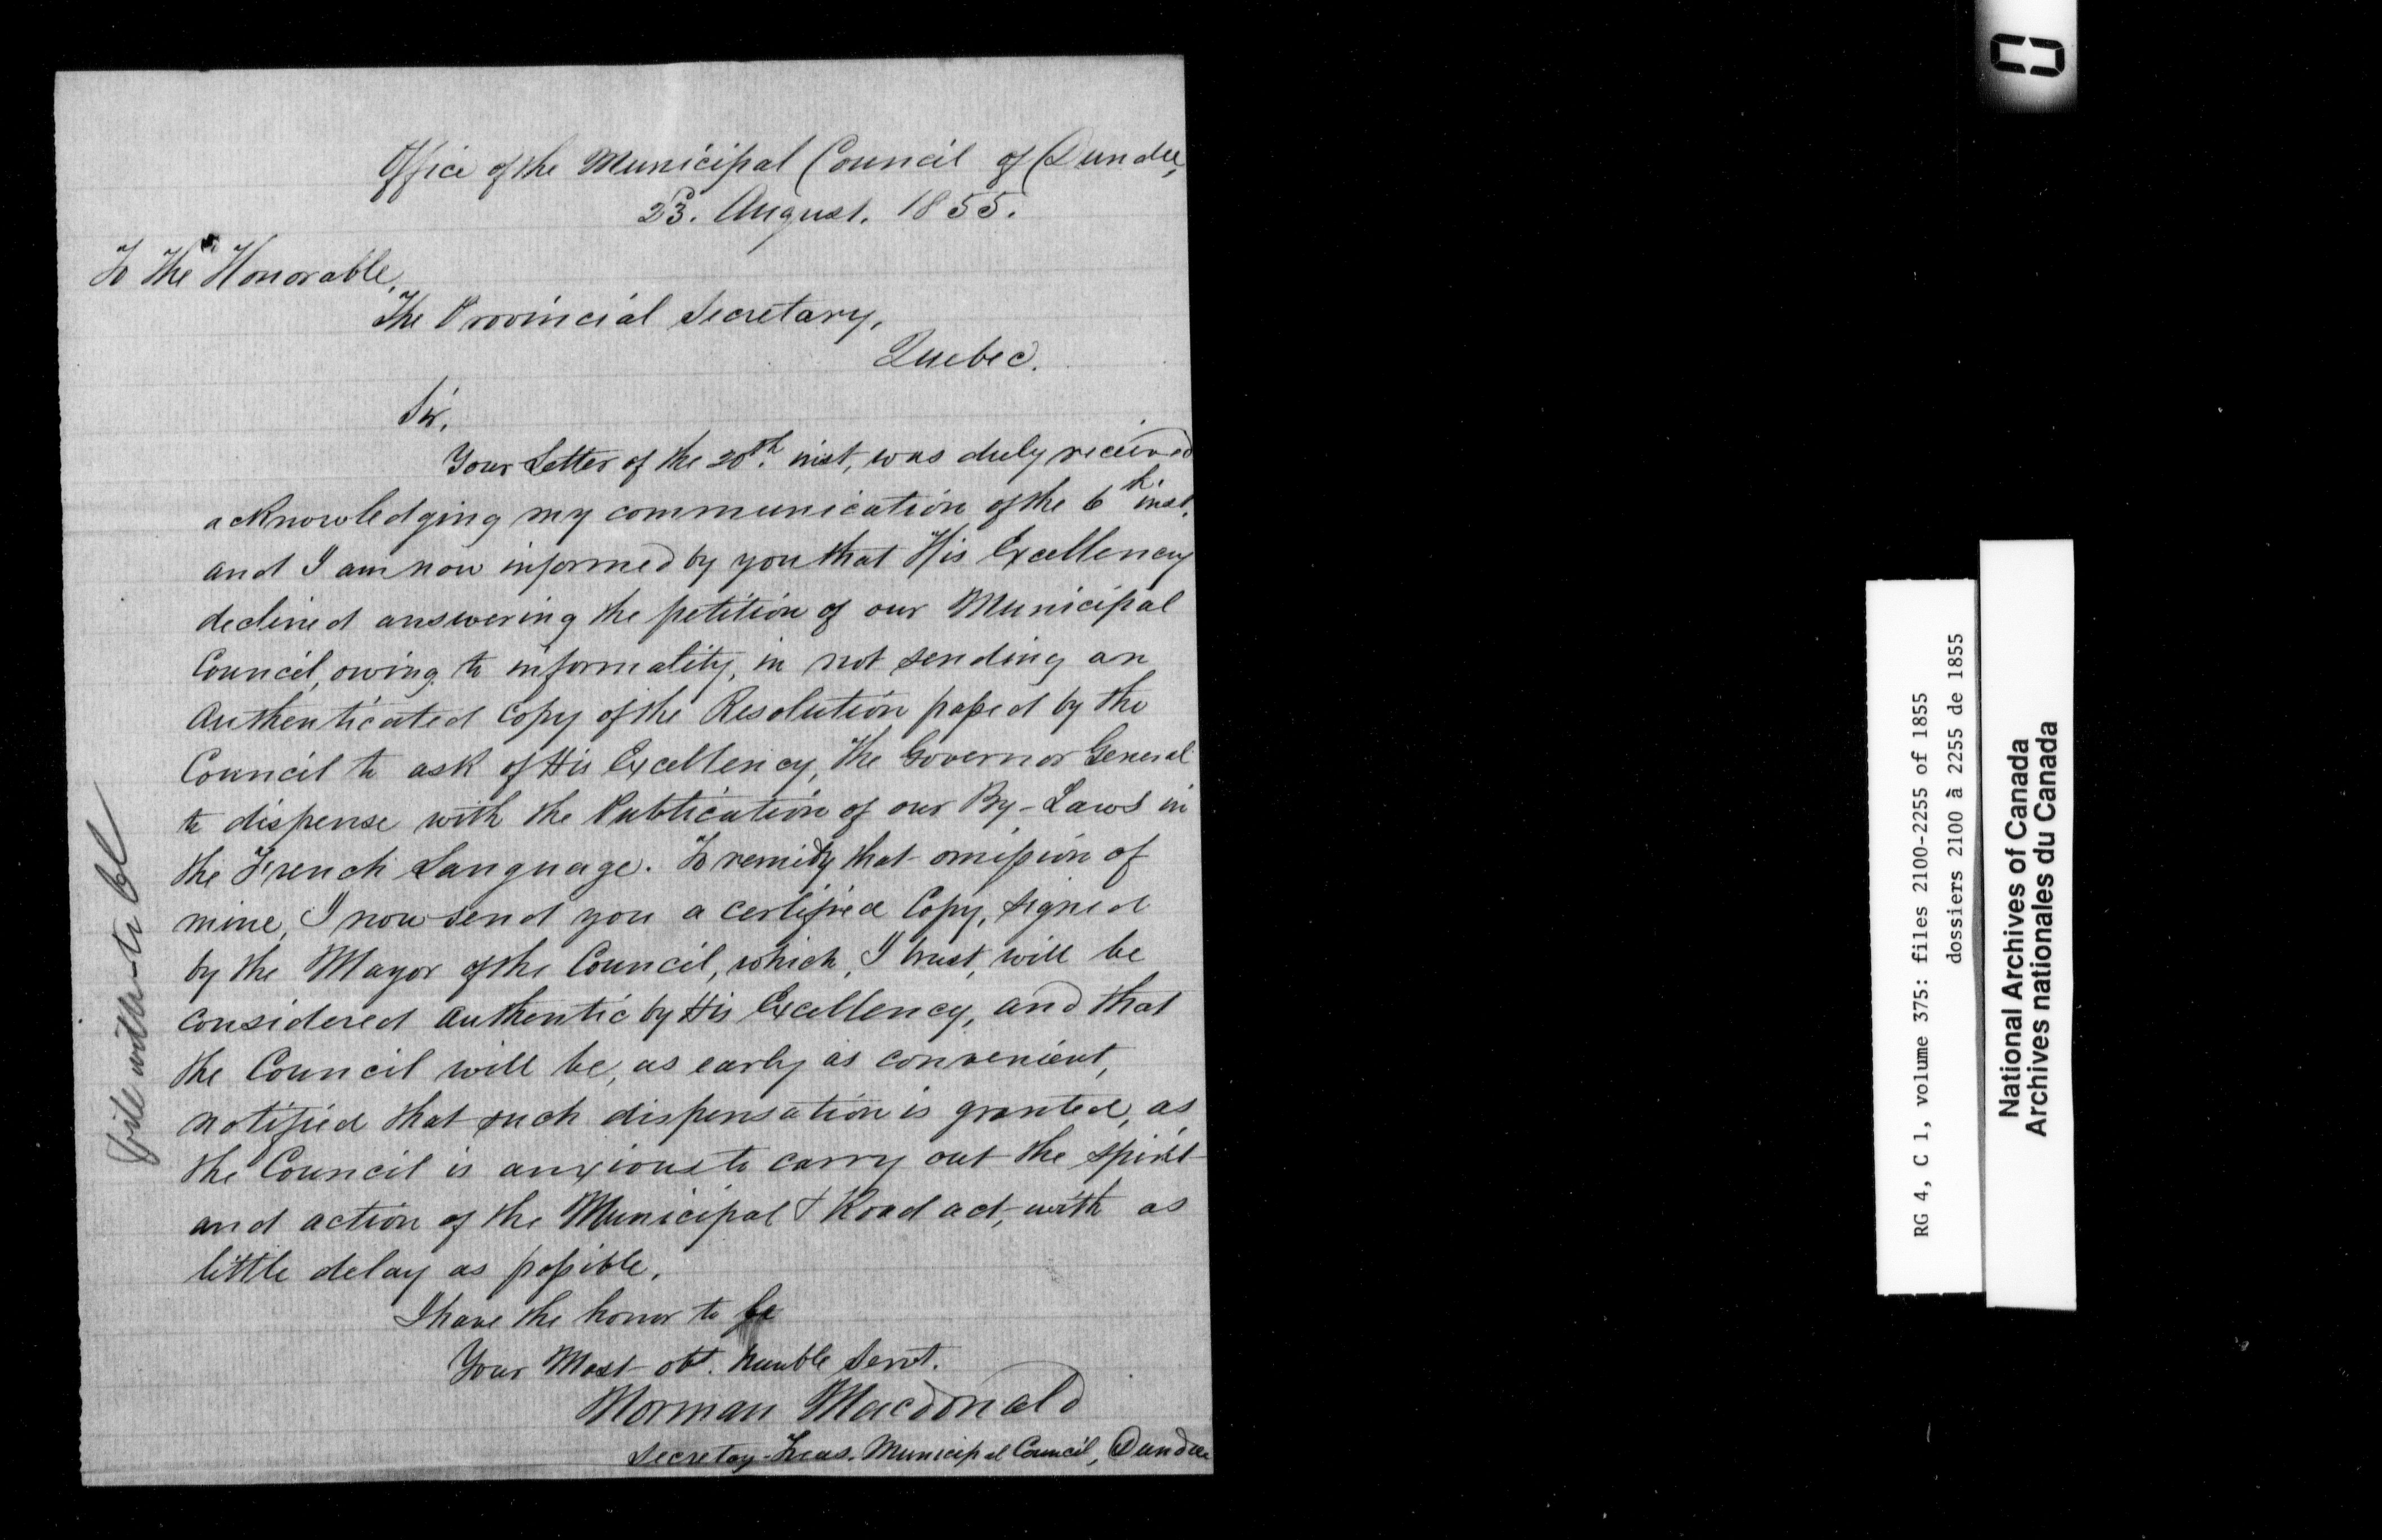 Office of the Municipal Council of Dundee,
23. August. 1855.
To The Honorable,
The Provincial Secretary,
Quebec.
Sir,
Your Letter of the 20th. inst, was duly received
acknowledging my communication of the 6th. inst.
and I am now informed by you that His Excellency
declined answering the petition of our Municipal
Council, owing to informality, in not sending an
Authenticated Copy of the Resolution passed by the
Council to ask of His Excellency, the Governor General
to dispense with the Publication of our By-Laws in
the French Language. To remidy that omission of
mine, I now send you a certified Copy, signed
by the Mayor of the Council, which, I trust, will be
considered authentic by His Excellency, and that
the Council will be, as early as convenient,
notified that such dispensation is granted, as
the Council is anxious to carry out the spirit
and action of the Municipal & Road act, with as
little delay as possible.
I have the honor to be
Your Most obt. humble Servt.
Norman Macdonald
Secretay-Treas. Municipal Council, Dundee
RG 4, C 1, volume 375: files 2100-2255 of 1855
dossiers 2100 à 2255 de 1855
National Archives of Canada
Archives nationales du Canada